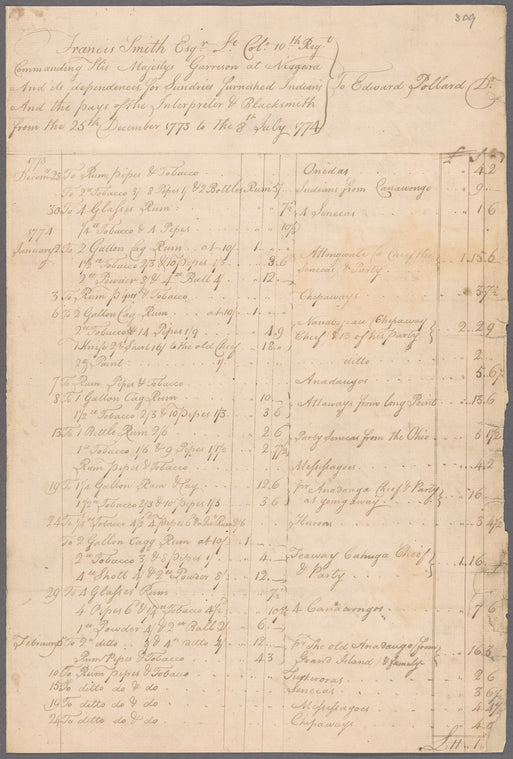 309
Francis Smith Esqr Lt Colo 10th Regt
Commanding His Majestys Garrison at Niagara
And its dependences, for Sundries furnished Indians
And the pays of the Interpreter & Blacksmith
from the 25th December 1773 to the 8th July 1774
To Edward Pollard Dr
£
1773
Decemr 25 To Rum, pipes & Tobacco Onedas 4 2
To 2 Tobacco 3/ 8 Pipes 1/ & 2 Bottles Rum 5/ Indians from Canawongo 9
30 To 4 Glasses Rum 7½ 4 Senecas 1 6
Tobacco & 4 Pipes 10½
1774
January 2 To 2 Gallon Cag Rum at 10/ 1
Tobacco 2/3 & 10 pipes 1/3 3 6 Chief the 1 15 6
2 Powder 8/ & 4 Ball 4/ 12 Senecas & Party
3 To Rum Pipes & Tobacco Chipaways 3 7½
6 To 2 Gallon Cag Rum at 10/ 1
2 Tobacco & 14 Pipes 1/9 4 9 Chipaway Chief & 13 of his Party 2 2 9
to the old Chief 18
2 Paint ditto 2
7 To Rum Pipes & Tobacco Anadaugos 5 6
8 To 1 Gallon Cag Rum 10 Attaways from Long Point 13 6
1½ Tobacco 2/3 & 10 pipes 1/3 3 6
13 To 1 Bottle Rum 2/6 2 6 Party Senecas from the Ohio 5 1½
1 Tobacco 1/6 & 9 Pipes 1/1½ 2 7½
Rum Pipes & Tobacco Messesagoes 4 2
19 To 1¼ Gallon Rum & Cag 12 6 pr Anadauga Chief & Party 16
1½ Tobacco 2/3 & 10 pipes 1/3 3 6 at going away
24 Huron 3 4½
To 2 Gallon Cagg Rum at 10/ 1
2 Tobacco 3/ & 8 Pipes 1/ 4 Cahuga Chief 1 16
4 Shott 4/ & 2 Powder 8/ 12 & Party
29 To 4 Glasses Rum 7½
4 Pipes 6d & Tobacco 4½ 10½ 4 Canawongos 7 6
1 Powder 4/ & 2 Ball 2/ 6
February 5 To 2 ditto 8/ & 4 Balls 4/ 12 pr the old Anadaugo from 16 3
Rum Pipes & Tobacco 4 3 Grand Island & family
10 To Rum Pipes & Tobacco Tuskworas 2 6
15 To ditto do & do Senecas 3 6½
19 To ditto do & do Messesagoes 4
24 To ditto do & do Chipaways 4 9
£ 11 1